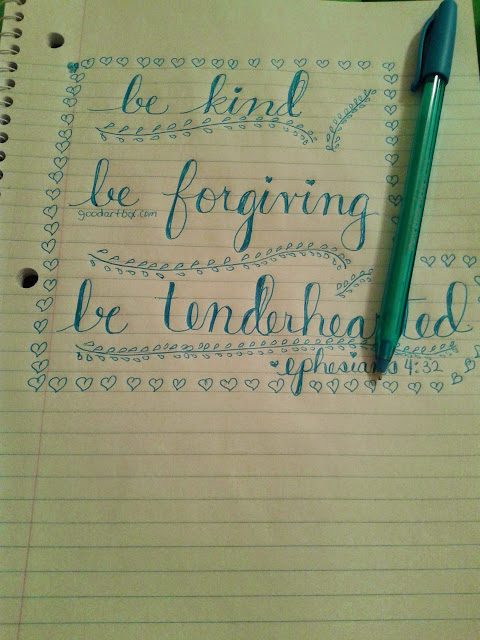 be kind
be forgiving
goodartbql.com
be tenderhearted
ephesians 4:32